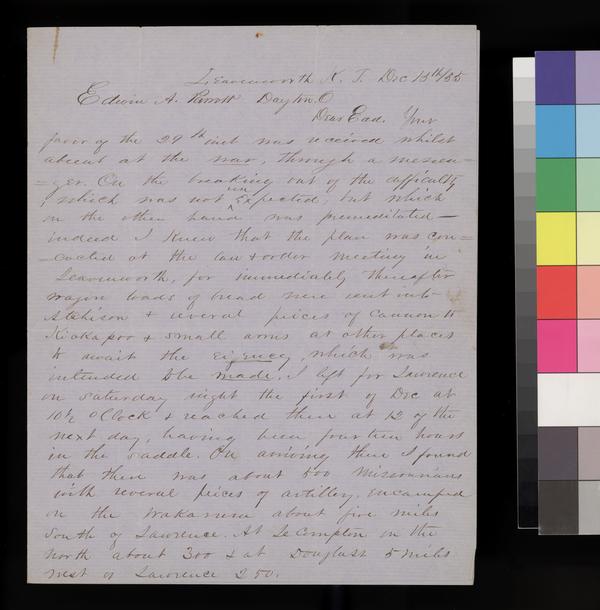 Leavenworth K. T. Dec 13th/55
Edwin A. Parrott Dayton. O
Dear Ead. Your
favor of the 29th inst was received whilst
absent at the war, through a messen-
=ger. On the breaking out of the difficulty,
which was not unexpected, but which
on the other hand was premeditated—
indeed I knew that the plan was con=
=cocted at the law & order meeting in
Leavenworth, for immediately thereafter
wagon loads of bread were sent into
Atchison & several pieces of Cannon to
Kickapoo & small arms at other places
to await the exigency, which was
intended to be made. I left for Lawrence
on Saturday night the first of Dec at
10½ oClock & reached there at 12 of the
next day, having been fourteen hours
in the saddle. On arriving there I found
that there was about 500 Missourians
with several pieces of artillery, encamped
on the Wakarusa about five miles
South of Lawrence. At LeCompton on the
North about 300 & at Douglass 5 miles
west of Lawrence 250.